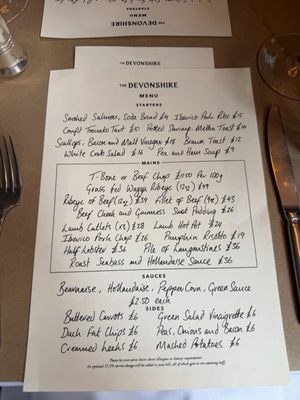 THE DEVONSHIRE
MENU
STARTERS
THE DEVONSHIRE
THE DEVONSHIRE
MENU
STARTERS
Smoked Salmon, Soda Bread £14 Iberico Pork Ribs £15
Confit Tomato Tart £10 Potted Shrimp, Melba Toast £14
Scallops, Bacon and Malt Vinegar £18 Brown Toast £12
White Crab Salad £16 Pea and Ham Soup £9
MAINS
T-Bone or Beef Chop £11.50 Per 100g
Grass fed Wagyu Ribeye (12oz) £49
Ribeye of Beef (12oz) £39 Fillet of Beef (9oz) £43
Beef Cheek and Guinness Suet Pudding £26
Lamb Cutlets (x3) £28 Lamb Hot Pot £24
Iberico Pork Chop £26 Pumpkin Risotto £19
Half Lobster £36 Pile of Langoustines £36
Roast Seabass and Hollandaise Sauce £36
SAUCES
Bearnaise, Hollandaise, Peppercorn, Green Sauce
£2.50 each
SIDES
Buttered Carrots £6 Green Salad Vinaigrette £6
Duck Fat Chips £6 Peas, Onions and Bacon £6
Creamed Leeks £6 Mashed Potatoes £6
Please let your server know about allergies or dietary requirements.
An optional 12.5% service charge will be added to your bill, all of which goes to our amazing staff.